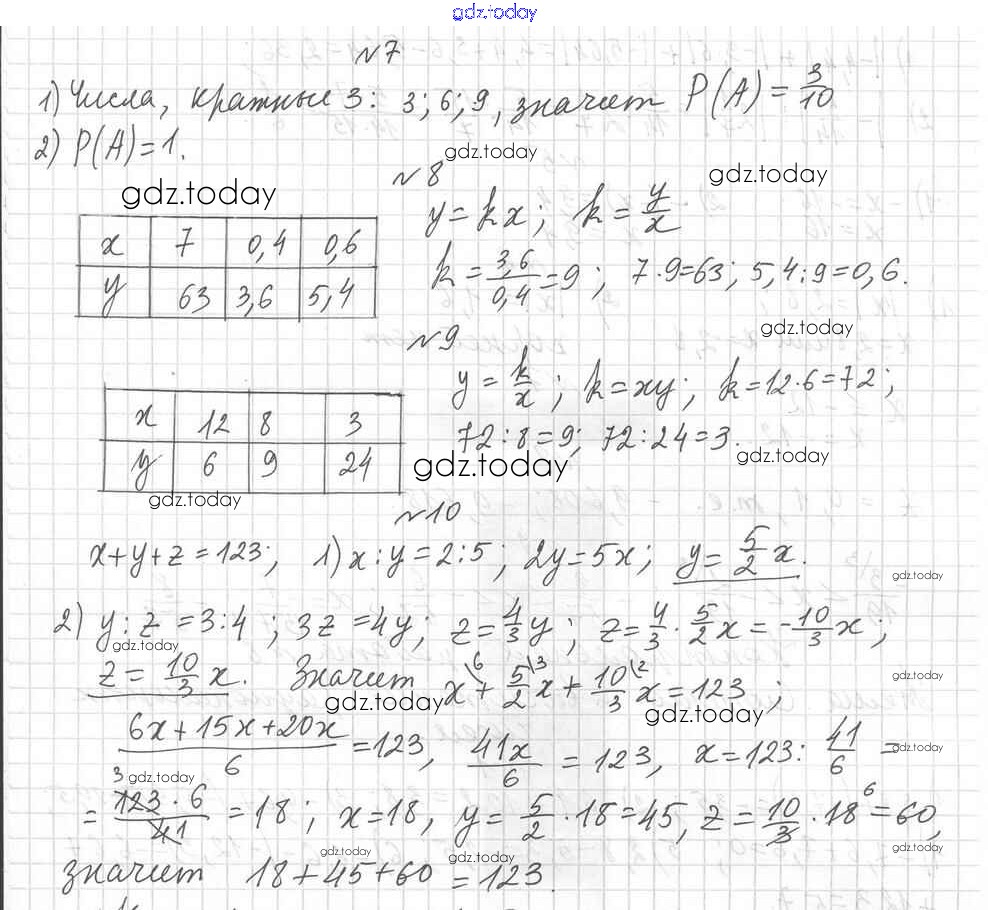 gdz.today
№7
1) Числа, кратные 3: 3; 6; 9, значит P(A) = 3/10
2) P(A) = 1.
gdz.today
gdz.today
gdz.today
№8
x 7 0,4 0,6
y 63 3,6 5,4
y = kx; k = y/x
k = 3,6/0,4 = 9; 7·9=63; 5,4:9=0,6.
gdz.today
№9
x 12 8 3
y 6 9 24
y = k/x; k = xy; k = 12·6 = 72;
72:8=9; 72:24=3.
gdz.today
gdz.today
gdz.today
№10
x+y+z=123; 1) x:y=2:5; 2y=5x; y = 5/2 x.
gdz.today
2) y:z=3:4; 3z=4y; z = 4/3 y; z = 4/3 · 5/2 x = -10/3 x;
gdz.today
z = 10/3 x. Значит x\6 + 5/2\3 x + 10/3\2 x = 123;
gdz.today
gdz.today
gdz.today
(6x+15x+20x)/6 = 123, 41x/6 = 123, x = 123 : 41/6 =
gdz.today
3 gdz.today
= 123·6/41 = 18; x=18, y = 5/2 · 18 = 45, z = 10/3 · 18 6 = 60,
gdz.today
gdz.today
gdz.today
значит 18+45+60 = 123.